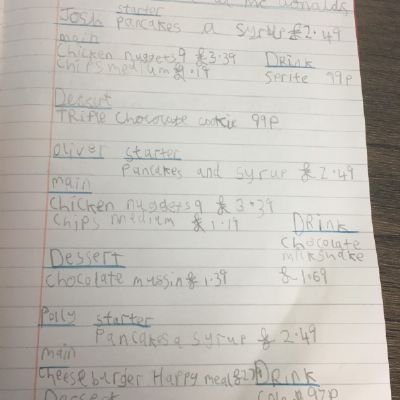 at mc donalds
starter
Josh pancakes a syrup £2.49
main
Chicken nuggets 9 £3.39 Drink
Chips medium £1.19 Sprite 99p
Dessert
Triple chocolate cookie 99p
Oliver starter
Pancakes and syrup £2.49
main
Chicken nuggets 9 £3.39
Chips medium £1.19 Drink
Chocolate
milkshake
Dessert
Chocolate mussin £1.39 £1.69
Polly starter
Pancakes a syrup £2.49
main
Cheeseburger Happy meal Drink
Dessert 97p